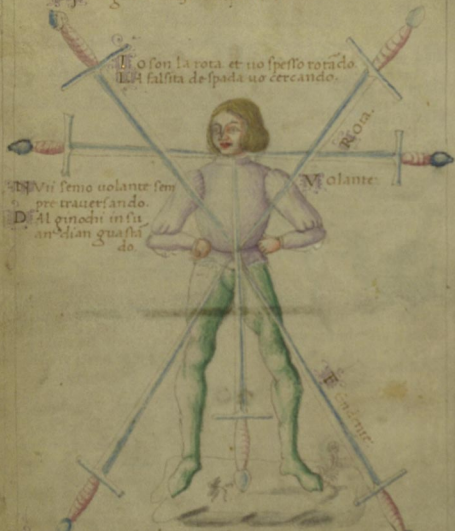 Io son la rota et uo spesso rotādo.
La falsita de spada uo cercando.
Rota.
Nvi semo uolante sem
pre trauersando.
Dal ginochi in su
andian guastā
do.
Volante.
Fendente.